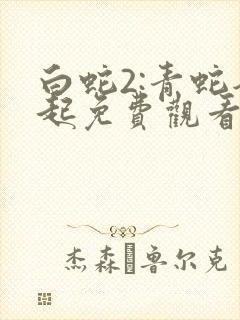 白蛇2:青蛇
起免費觀看
杰森·鲁尔克